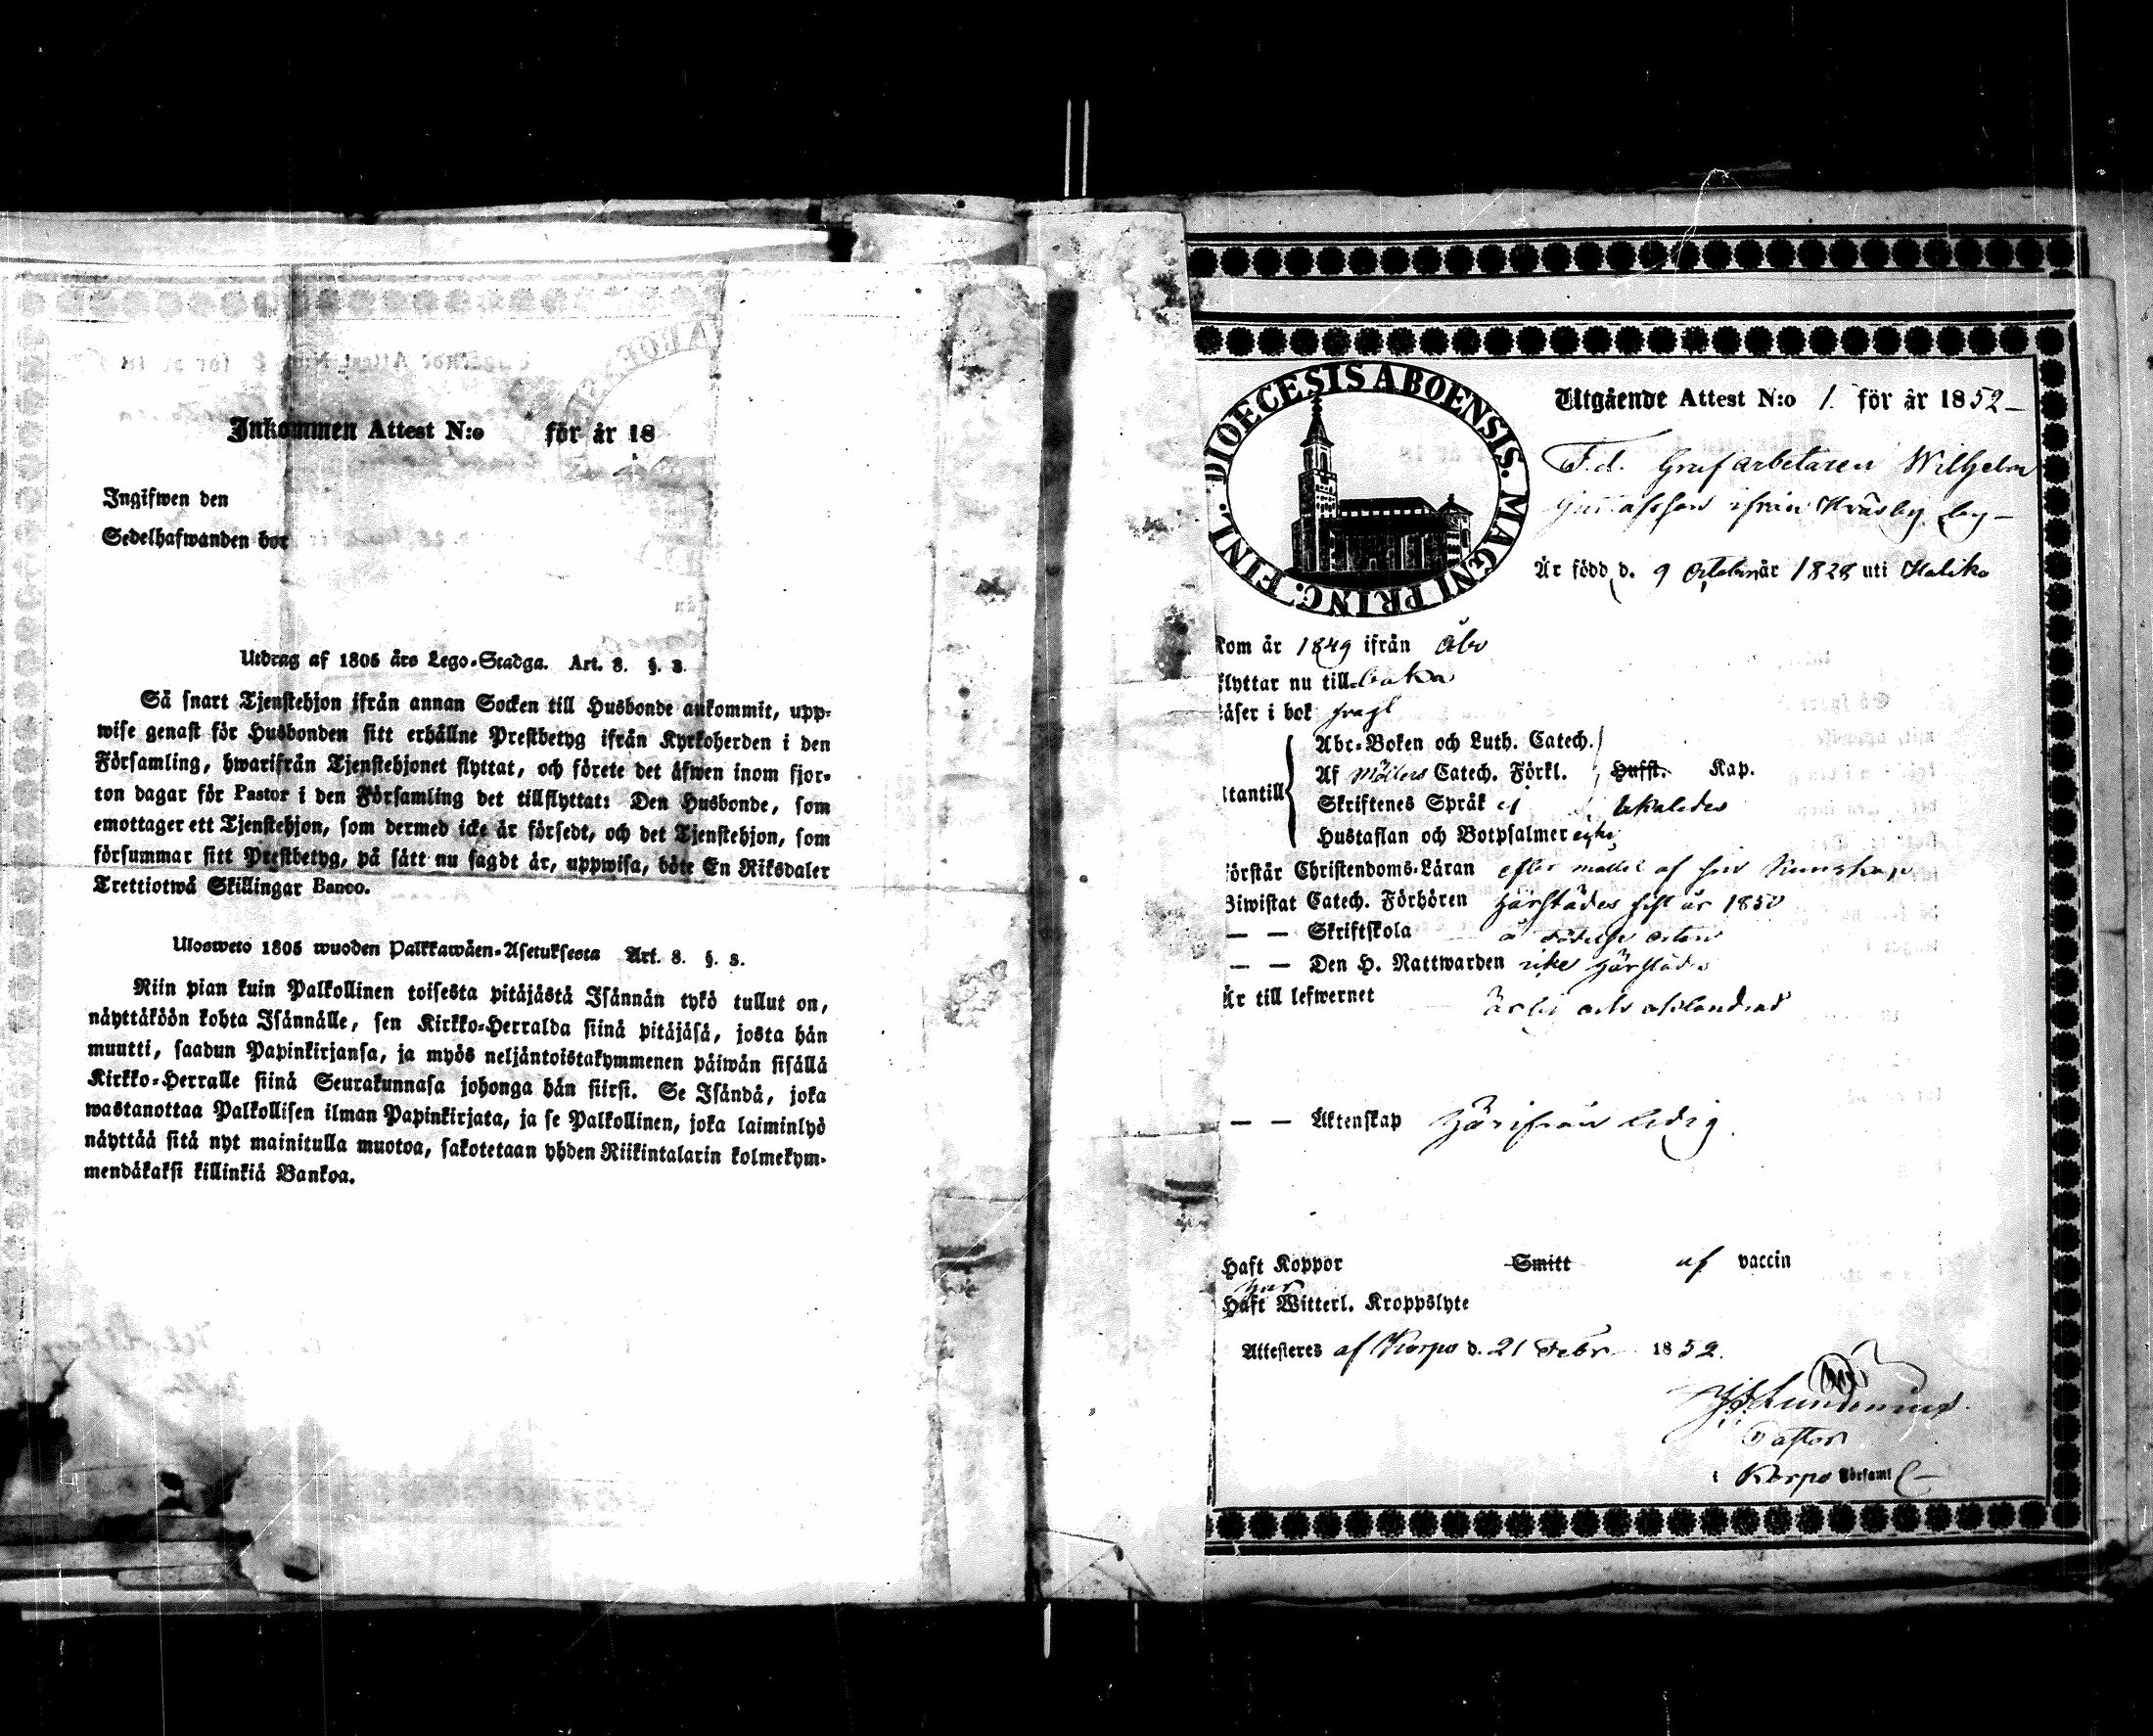 Inkommen Attest N:o för år 18
Ingifwen den
Sedelhafwanden bor
Utdrag af 1805 års Lego-Stadga. Art. 8. §. 8.
Så snart Tjenstehjon ifrån annan Socken till Husbonde ankommit, upp-
wise genast för Husbonden sitt erhållne Prestbetyg ifrån Kyrkoherden i den
Församling, hwarifrån Tjenstehjonet flyttat, och förete det äfwen inom fjor-
ton dagar för Pastor i den Församling det tillflyttat: Den Husbonde, som
emottager ett Tjenstehjon, som dermed icke är försedt, och det Tjenstehjon, som
försummar sitt Prestbetyg, på sätt nu sagdt är, uppwisa, böte En Riksdaler
Trettiotwå Skillingar Banco.
Ulosweto 1805 wuoden Palkkawäen-Asetuksesta Art. 8. §. 8.
Niin pian kuin Palkollinen toisesta pitäjästä Isännän tykö tullut on,
näyttäköön kohta Isännälle, sen Kirkko-Herralda siinä pitäjäsä, josta hän
muutti, saadun Papinkirjansa, ja myös neljäntoistakymmenen päiwän sisällä
Kirkko-Herralle siinä Seurakunnasa johonga hän siirsi. Se Isändä, joka
wastanottaa Palkollisen ilman Papinkirjata, ja se Palkollinen, joka laiminlyö
näyttää sitä nyt mainitulla muotoa, sakotetaan yhden Riikintalarin kolmekym-
mendäkaksi killinkiä Bankoa.
DIOECESIS ABOENSIS. MAGNI PRINC. FINL.
Utgående Attest N:o 1. för år 1852
F.d. Grufarbetaren Wilhelm
Gustafsson ifrån by
Är född d. 9 October år 1828 uti Haliko
Kom år 1849 ifrån Åbo
flyttar nu till
äser i bok
Abc-Boken och Luth. Catech.
Af Möllers Catech. Förkl. Hufst. Kap.
Utantill Skriftenes Språk ej
Hustaflan och Botpsalmer
örstår Christendoms-Läran efter måttet af sin kunskap
Biwistat Catech. Förhören härstädes sist år 1850
— — Skriftskola å födelse orten
— — Den H. Nattwarden härstädes
Är till lefwernet ärlig och
— — Äktenskap härifrån ledig.
Haft Koppor Smitt af vaccin
Haft Witterl. Kroppslyte
Attesteres af Korpo d. 21 Febr 1852.
Lundenius
Pastor
i Korpo Församl